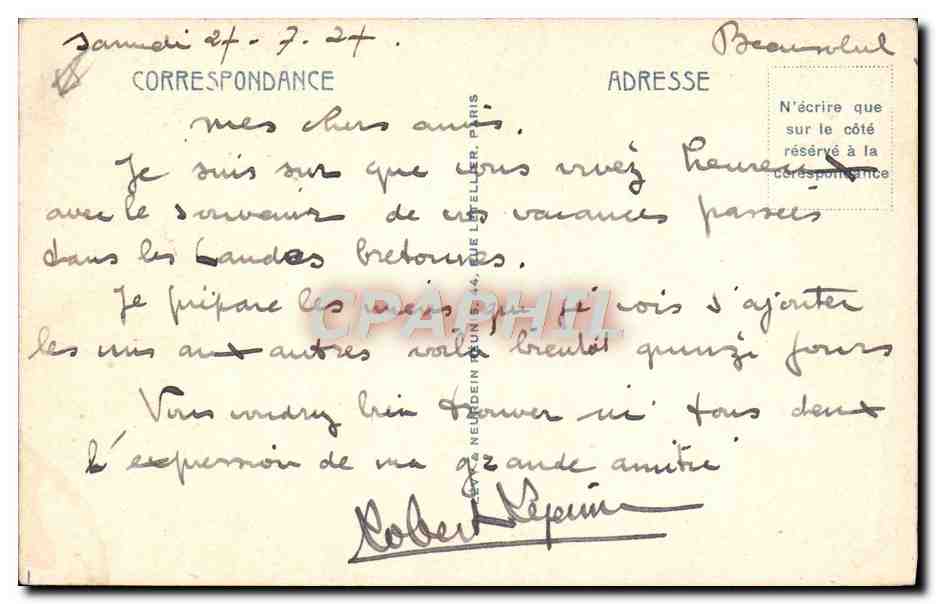 Samedi 27-7-27. Beausoleil
CORRESPONDANCE ADRESSE
N'écrire que
sur le côté
réservé à la
correspondance
mes chers amis.
Je suis sur que vous vivez heureux
avec le souvenir de vos vacances passées
dans les Landes bretonnes.
Je prépare les miens que je vois s'ajouter
les uns aux autres voilà bientôt quinze jours
Vous voudrez bien trouver ici tous deux
l'expression de ma grande amitié
Robert
LEVY & NEURDEIN REUNIS, 44, RUE LETELLIER, PARIS
CPAPHIL